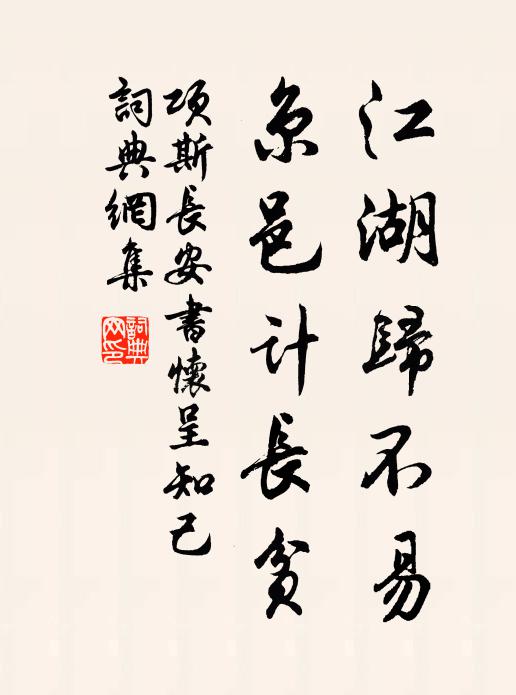 江湖歸不易
京邑计長貧
項斯長安書懷呈知己
詞典網集
詞典網印